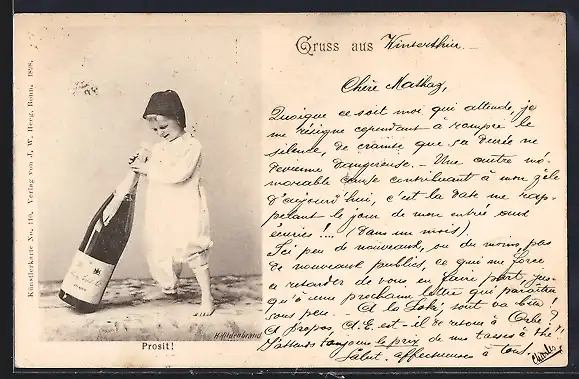 Gruss aus Winterthur.
Chère Mathaz,
Quoique ce soit moi qui attende, je
me résigne cependant à rompre le
silence, de crainte que sa durée ne
devienne dangereuse. - Une autre mé-
morable cause contribuant à mon zèle
d'aujourd'hui, c'est la date me rap-
pelant le jour de mon entrée aux
écuries !... (dans un mois).
Ici peu de nouveaux, ou du moins pas
de nouveaux publics, ce qui me force
à retarder de vous en faire part, jus-
qu'à une prochaine lettre qui paraîtra
sous peu. - A la Loki, tout va bien !
A propos, A.E. est-il de retour à Orbe ?
J'attends toujours le prix de mes tasses à thé !!
Salut affectueux à tous.
Charles
Künstlerkarte No. 140. Verlag von J. W. Heeg, Bonn. 1898.
H. Hildenbrand
Prosit!